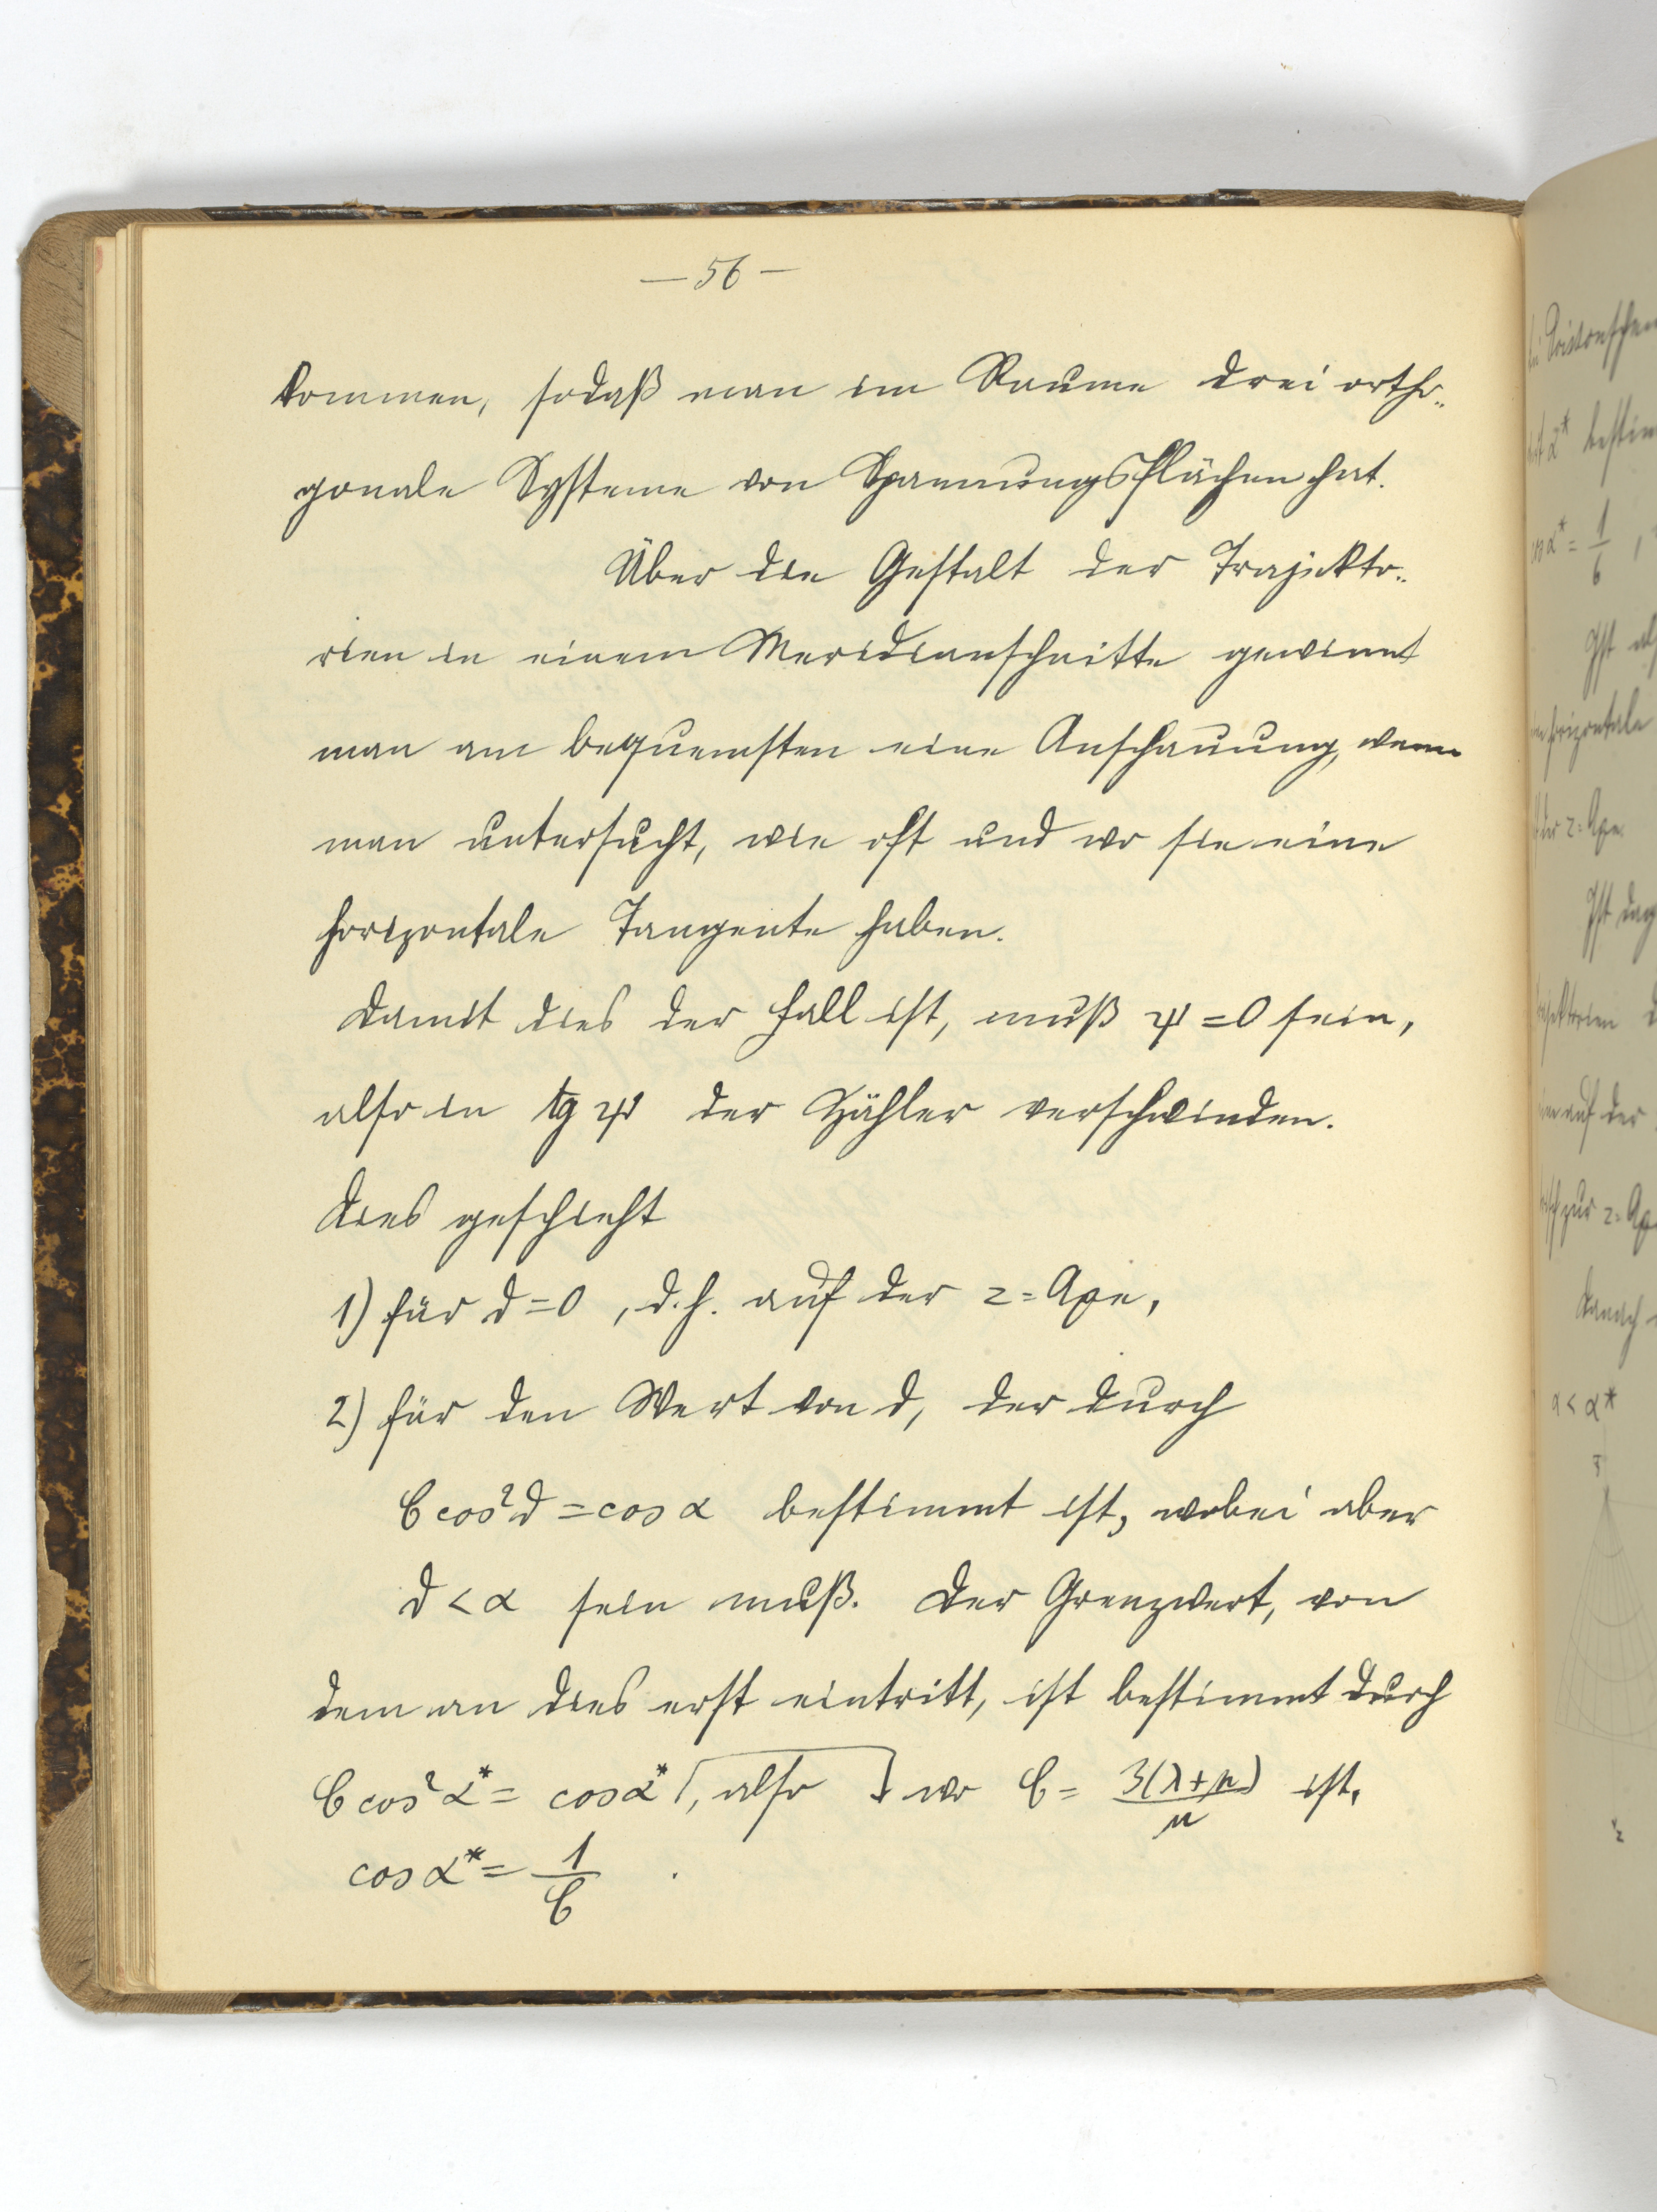 — 56 —
kommen, sodaß man im Raume drei ortho-
gonale Systeme von Spannungsflächen hat.
Über die Gestalt der Trajekto-
rien in einem Meridianschnitte gewinnt
man am bequemsten eine Anschauung, wenn
man untersucht, wie oft und wo sie eine
horizontale Tangente haben.
Damit dies der Fall ist, muß ψ = 0 sein,
also in tg ψ der Zähler verschwinden.
Dies geschieht
1) für ϑ = 0, d.h. auf der z=Axe,
2) für den Wert von ϑ, der durch
C cos²ϑ = cos α bestimmt ist, wobei aber
ϑ < α sein muß. Der Grenzwert, von
dem an dies erst eintritt, ist bestimmt durch
C cos² α* = cos α* [, also ] wo C = 3(λ+μ)/μ ist,
cos α* = 1/C .
cos α* = 1/6 ,
Ist
horizontale
der z=Axe.
Ist
auf der
zur z=Axe
Danach
α < α*